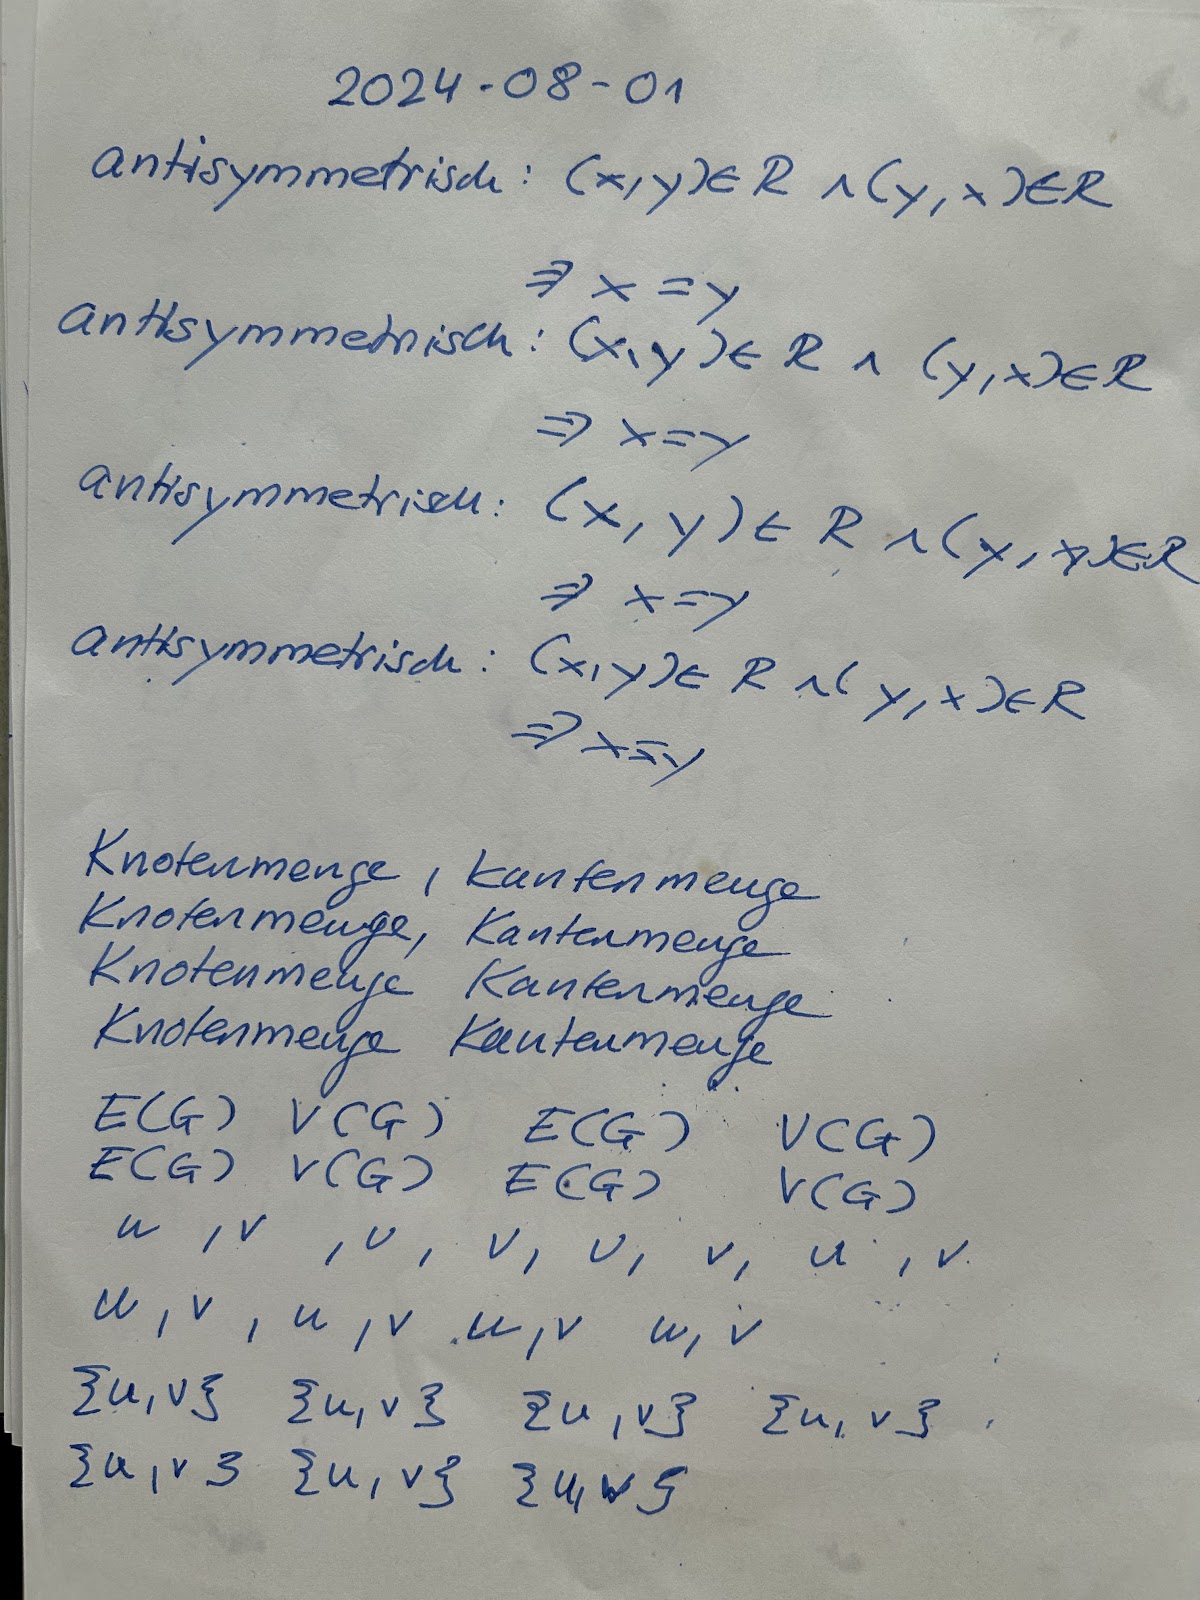 2024-08-01
antisymmetrisch: (x,y)∈R ∧(y,x)∈R
⇒ x=y
antisymmetrisch: (x,y)∈R ∧ (y,x)∈R
⇒ x=y
antisymmetrisch: (x,y)∈R ∧(y,x)∈R
⇒ x=y
antisymmetrisch: (x,y)∈R ∧(y,x)∈R
⇒ x=y
Knotenmenge, Kantenmenge
Knotenmenge, Kantenmenge
Knotenmenge Kantenmenge
Knotenmenge Kantenmenge
E(G) V(G) E(G) V(G)
E(G) V(G) E(G) V(G)
u, v, u, v, u, v, u, v
u, v, u, v u, v u, v
{u,v} {u,v} {u,v} {u,v}
{u,v} {u,v} {u,v}